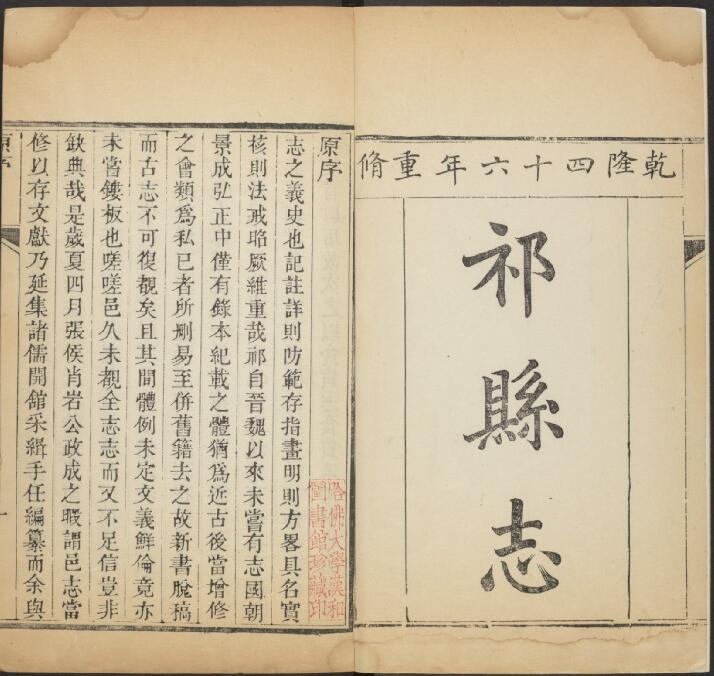 乾隆四十六年重脩
祁縣志
原序
志之義史也記註詳則防範存指畫明則方畧具名實
核則法戒昭厥維重哉祁自晉魏以來未嘗有志國朝
景成弘正中僅有錄本紀載之體猶爲近古後當增修
之會類爲私已者所刪易至併舊籍去之故新書脫稿
而古志不可復覩矣且其間體例未定文義鮮倫竟亦
未當鏤板也嗟嗟邑久未覩全志志而又不足信豈非
缺典哉是歲夏四月張侯肖岩公政成之暇謂邑志當
修以存文獻乃延集諸儒開舘采緝手任編纂而余與
原序
一
哈佛大學漢和
圖書館珍藏印